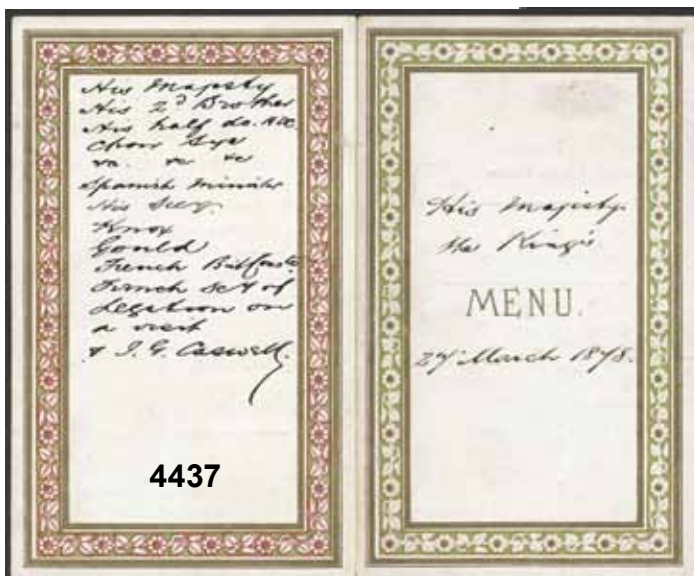 His Majesty
His 2d Brother
His half do.
Chow
Spanish Minister
His Secy.
Knox
Gould
French
French Sec of
Legation on
a visit
& J. G. Caswell.
4437
His Majesty
the King's
MENU.
March 1878.